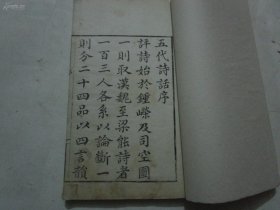 五代詩話序
評詩始於鍾嶸及司空圖
一則取漢魏至梁能詩者
一百三人各系以論斷一
則分二十四品以四言韻